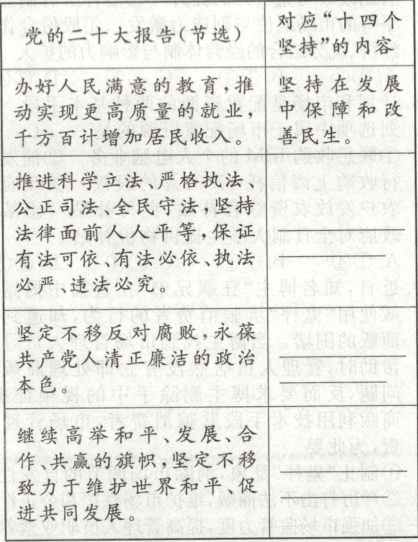 党的二十大报告(节选)
对应“十四个
坚持”的内容
办好人民满意的教育,推
动实现更高质量的就业,
千方百计增加居民收入。
坚持在发展
中保障和改
善民生。
推进科学立法、严格执法、
公正司法、全民守法,坚持
法律面前人人平等,保证
有法可依、有法必依、执法
必严、违法必究。
坚定不移反对腐败,永葆
共产党人清正廉洁的政治
本色。
继续高举和平、发展、合
作、共赢的旗帜,坚定不移
致力于维护世界和平、促
进共同发展。